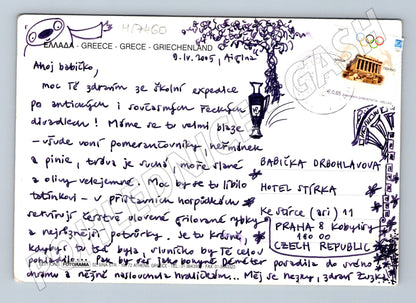 417460
ΕΛΛΑΔΑ - GREECE - GRECE - GRIECHENLAND
9.IV.2005, Aigina
Ahoj babičko,
moc Tě zdravím ze školní expedice
po antických i současných řeckých
divadlech! Máme se tu velmi blaze
- všude voní pomerančovníky, heřmánek
a pinie, tráva je suchá, moře slané
a olivy velejemné. Moc by se tu líbilo
tatínkovi - v přístavních hospůdkách
servírují čerstvě ulovené grilované rybky
a nejrůznější potvůrky. Je tu krásně,
kdybys tu teď byla, sluníčko by tě celou
pohladilo... Pak by vás jako bohyně posadila do
chrámu a něžně naslouchala hrdličkám... Měj se hezky, zdraví Zuzka
BABIČKA DRBOHLAVOVA
HOTEL STÍRKA
Ke Stírce (asi) 11
PRAHA 8 Kobylisy
180 00
CZECH REPUBLIC
POHLEDNICE